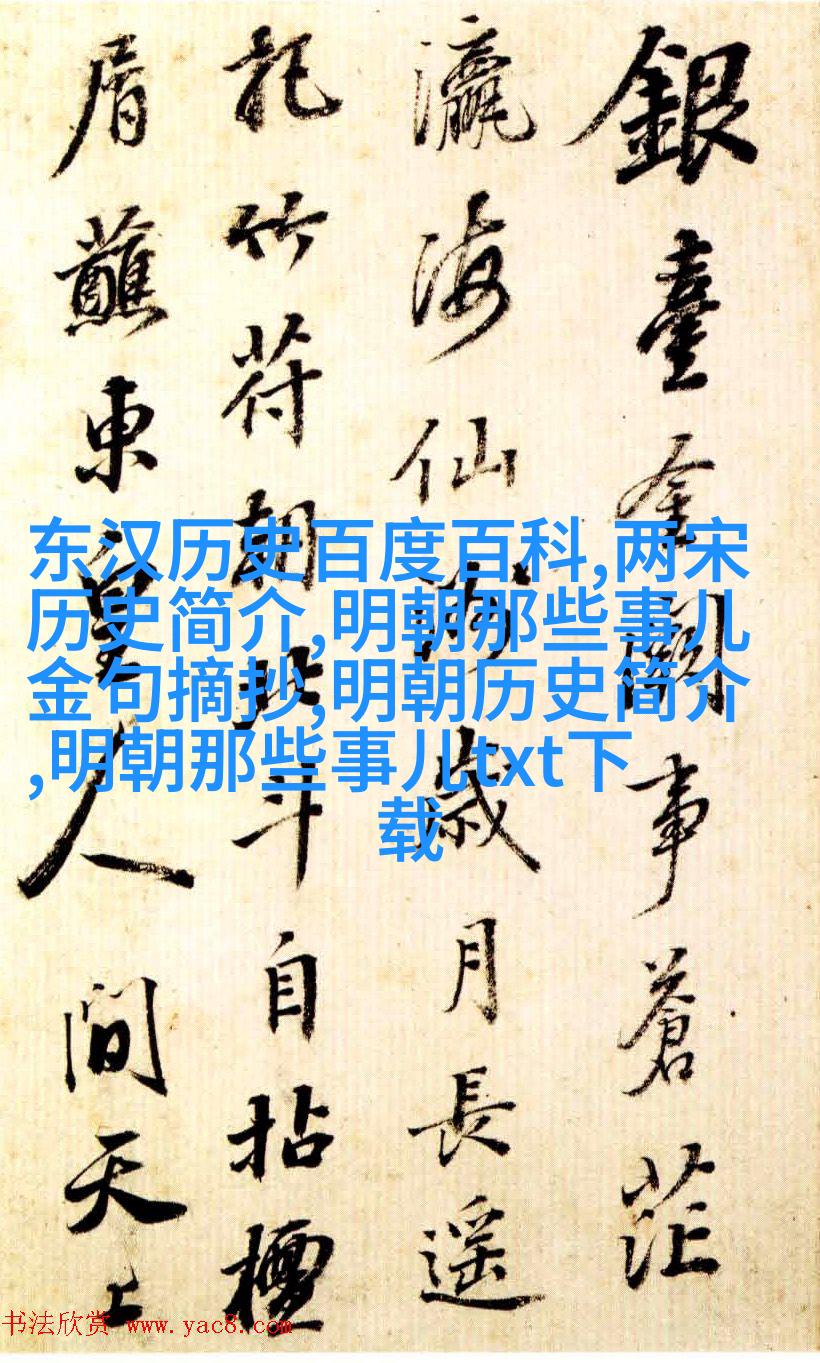 銀臺金闕事蒼茫
瀛海仙洲歲月長遥
記竹符朝北斗自拈檀
屑蘸東皇人間天上
东汉历史百度百科,两宋
历史简介,明朝那些事儿
金句摘抄,明朝历史简介
,明朝那些事儿txt下
载
书法欣赏 www.yac8.com